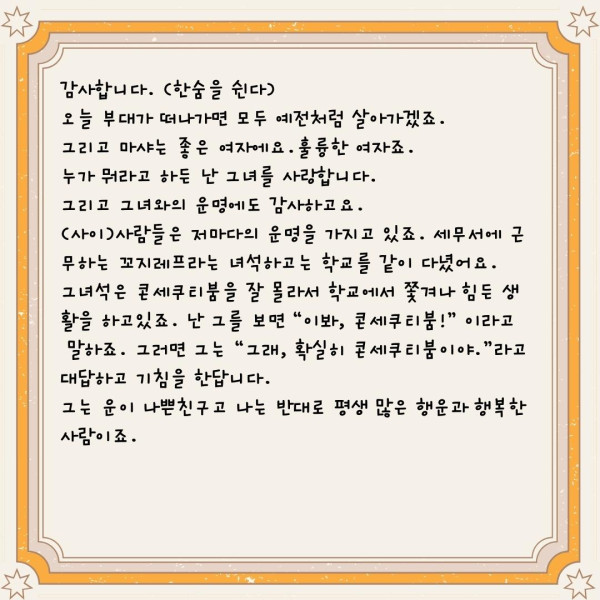 감사합니다. (한숨을 쉰다)
오늘 부대가 떠나가면 모두 예전처럼 살아가겠죠.
그리고 마샤는 좋은 여자에요.훌륭한 여자죠.
누가 뭐라고 하든 난 그녀를 사랑합니다.
그리고 그녀와의 운명에도 감사하고요.
(사이)사람들은 저마다의 운명을 가지고 있죠. 세무서에 근
무하는 꼬지레프라는 녀석하고는 학교를 같이 다녔어요.
그녀석은 콘세쿠티붐을 잘 몰라서 학교에서 쫓겨나 힘든 생
활을 하고있죠. 난 그를 보면 “이봐, 콘세쿠티붐!” 이라고
말하죠. 그러면 그는 “그래, 확실히 콘세쿠티붐이야.”라고
대답하고 기침을 한답니다.
그는 운이 나쁜친구고 나는 반대로 평생 많은 행운과 행복한
사람이죠.